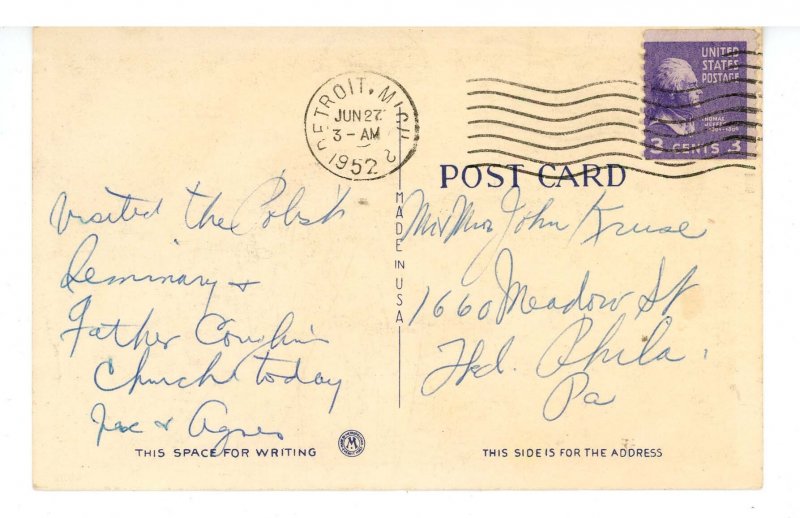 DETROIT, MICH.
2
JUN 27
3 - AM
1952
UNITED
STATES
POSTAGE
THOMAS
JEFFERSON
3 CENTS 3
POST CARD
MADE IN USA
Visited the Polish
Seminary &
Father Coughlin's
Church today
& Agnes
Mr Mrs John Kruse
1660 Meadow St
Phila.
Pa
M
THIS SPACE FOR WRITING
THIS SIDE IS FOR THE ADDRESS